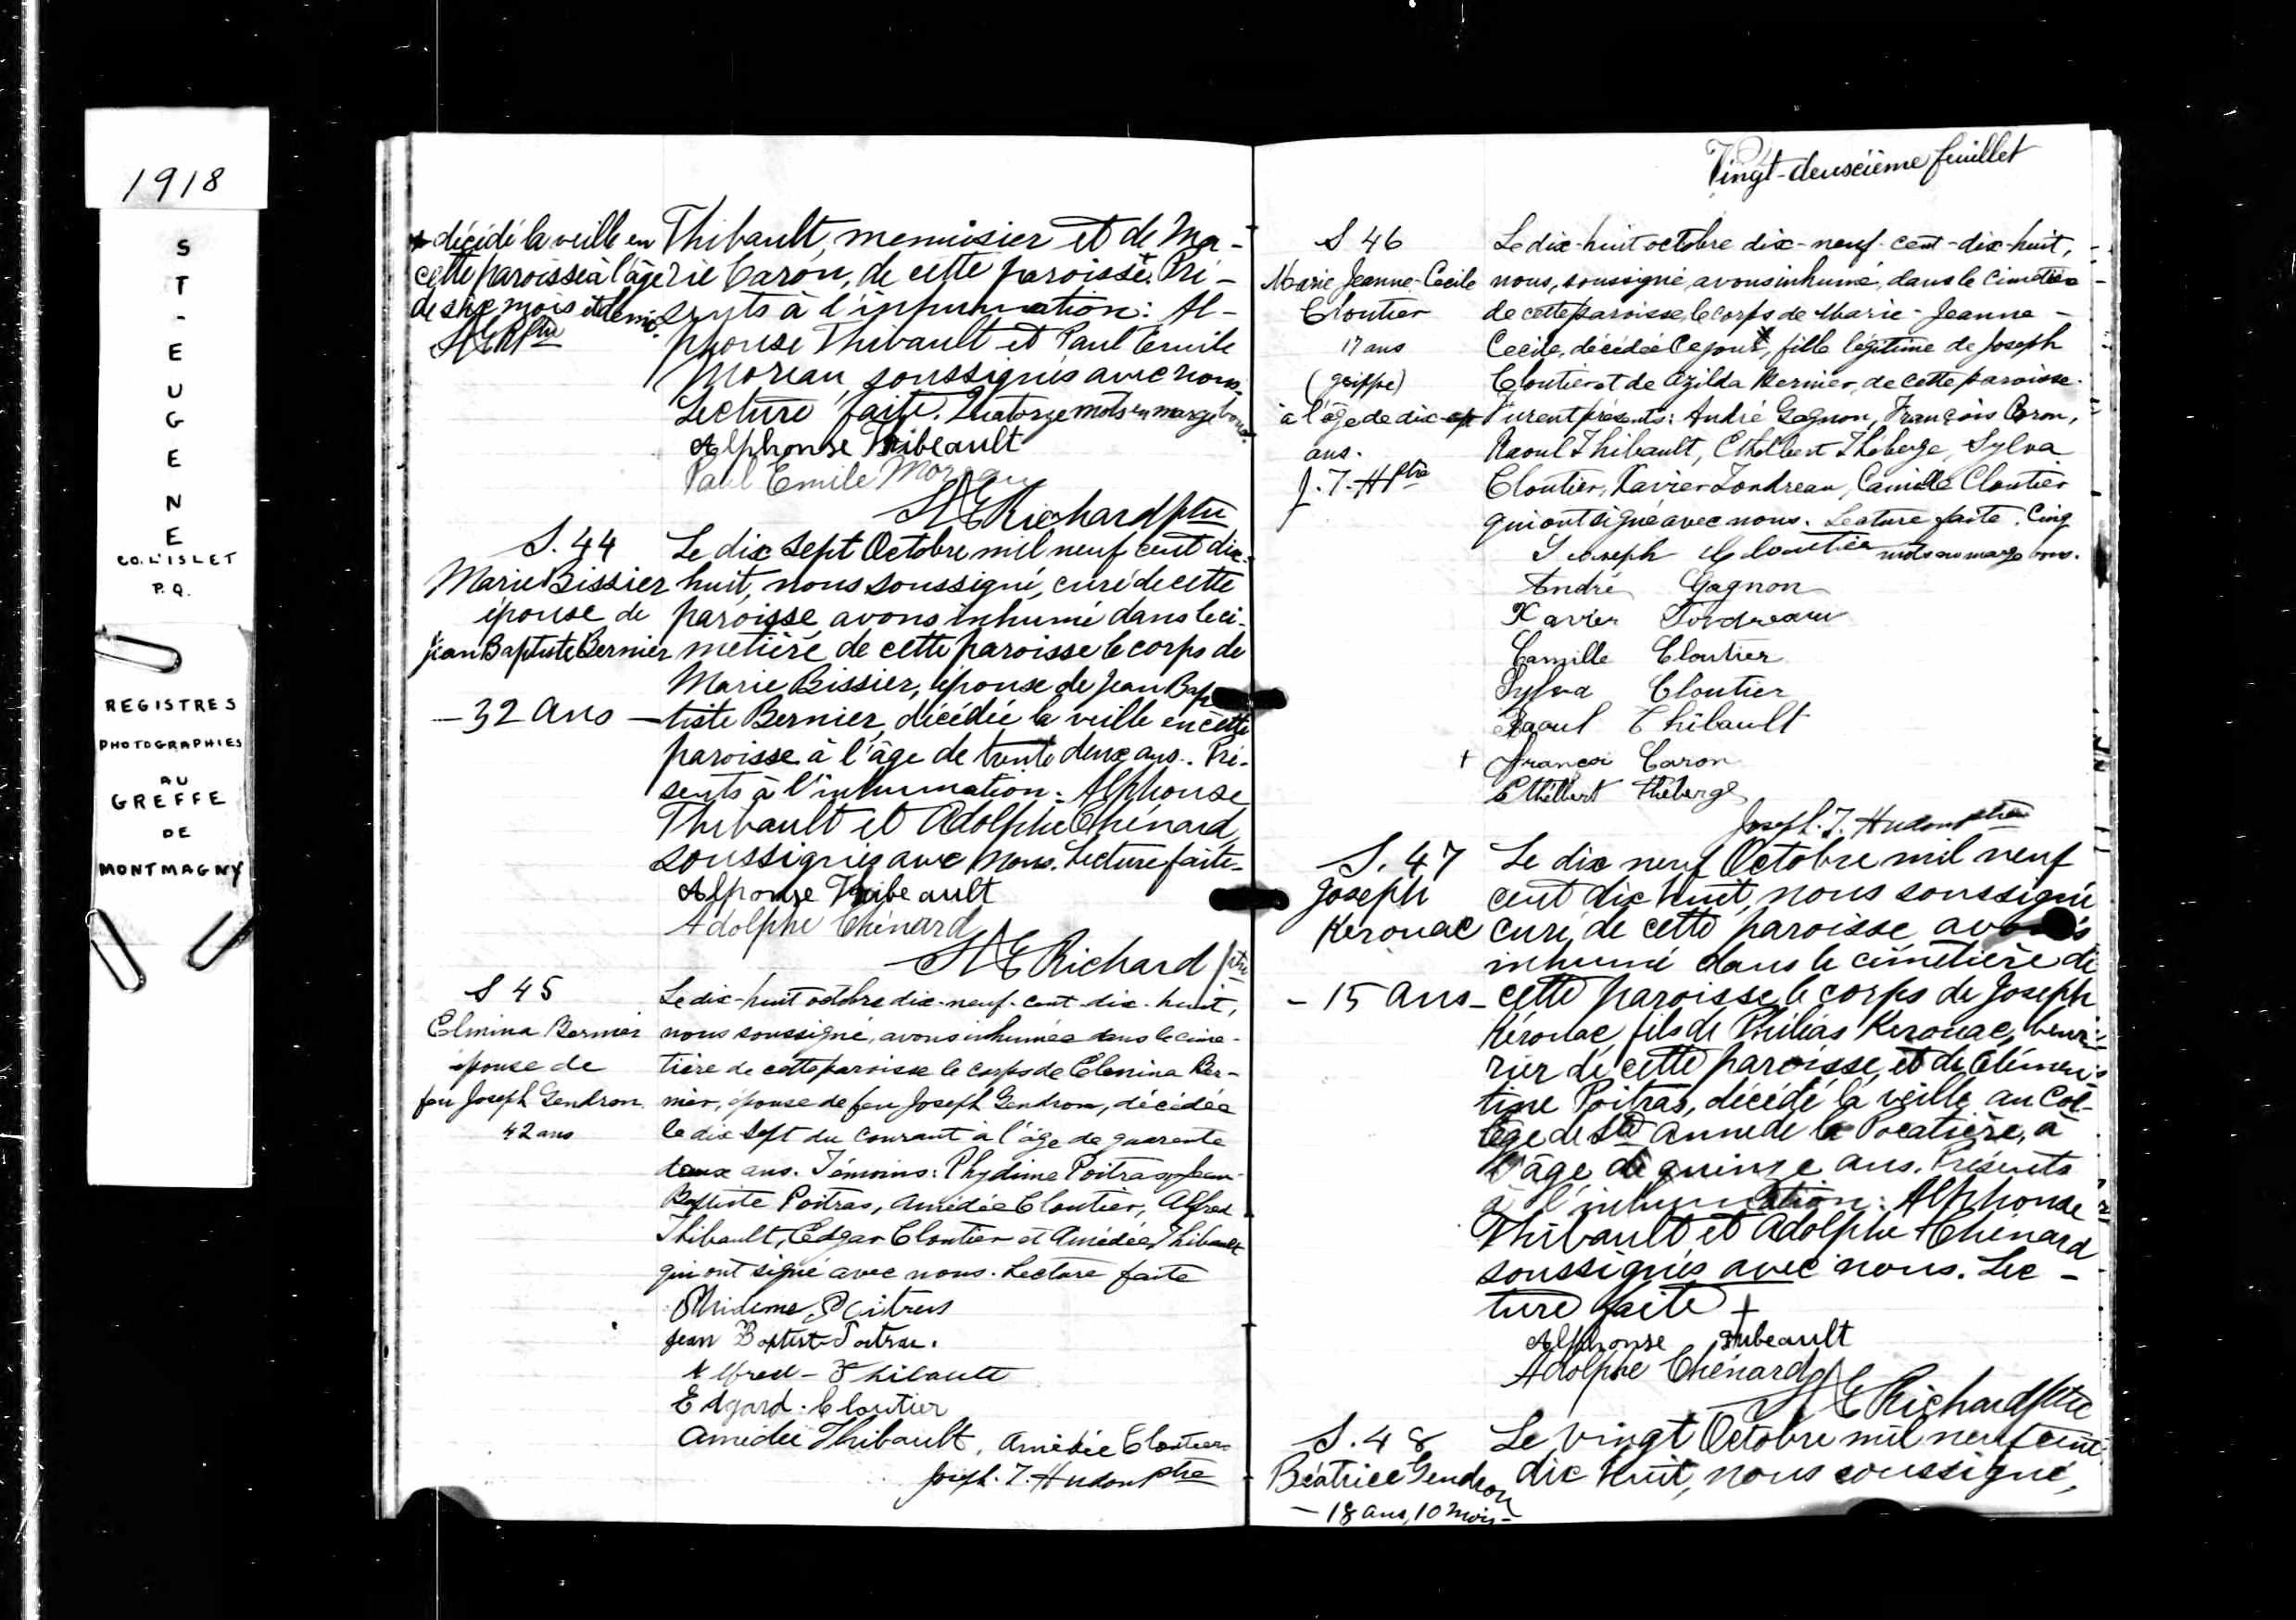 1918
ST-EUGENE
CO. L'ISLET
P.Q.
REGISTRES
PHOTOGRAPHIES
AU
GREFFE
DE
MONTMAGNY
+ décédé la veille en
cette paroisse à l'âge
de six mois et demi.
Thibault, menuisier et de Ma-
rie Caron, de cette paroisse + Pré-
sents à l'inhumation: Al-
phonse Thibault et Paul Emile
Moreau, soussignés avec nous.
Lecture faite. Quatorze mots en marge bons.
Alphonse Thibeault
Paul Emile Moreau
Richard ptre
S. 44
Marie Bissier
épouse de
Jean Baptiste Bernier
- 32 ans -
Le dix sept Octobre mil neuf cent dix-
huit, nous soussigné, curé de cette
paroisse avons inhumé dans le ci-
metière de cette paroisse le corps de
Marie Bissier, épouse de Jean Bap
tiste Bernier, décédée la veille en cette
paroisse à l'âge de trente deux ans. Pré-
sents à l'inhumation: Alphonse
Thibault et Adolphe Chénard,
soussignés avec nous. Lecture faite-
Alphonse Thibeault
Adolphe Chénard
Richard ptre
S 45
Elmina Bernier
épouse de
feu Joseph Gendron
42 ans
Le dix-huit octobre dix-neuf-cent-dix-huit,
nous soussigné, avons inhumée dans le cime-
tière de cette paroisse le corps de Elmina Ber-
nier, épouse de feu Joseph Gendron, décédée
le dix sept du courant à l'âge de quarante
deux ans. Témoins: Phydime Poitras, Jean-
Baptiste Poitras, Amédée Cloutier, Alfred
Thibault, Edgar Cloutier et Amédée Thibault
qui ont signé avec nous. Lecture faite
Phideme Poitras
Jean Baptist Poitras.
Alfred - Thibault
Edgard. Cloutier
Amédée Thibault, Amédée Cloutier
Joseph. T. Hudon ptre
Vingt-deuxième feuillet
S 46
Marie Jeanne-Cecile
Cloutier
17 ans
(grippe)
à l'âge de dix-sept
ans.
J. T. H ptre
Le dix-huit octobre dix-neuf-cent-dix-huit,
nous, soussigné, avons inhumé, dans le cimetière
de cette paroisse, le corps de Marie-Jeanne-
Cecile, décédée ce jour, fille légitime de Joseph
Cloutier et de Azilda Bernier, de cette paroisse.
Furent présents: André Gagnon, François Caron,
Raoul Thibault, Ethelbert Théberge, Sylva
Cloutier, Xavier Tondreau, Camille Cloutier
qui ont signé avec nous. Lecture faite. Cinq
mots en marge bons.
Joseph Cloutier
André Gagnon
Xavier Tondreau
Camille Cloutier
Sylva Cloutier
Raoul Thibault
+ Françoi Caron
Ethelbert Théberge
Joseph. T. Hudon ptre
S. 47
Joseph
Kérouac
- 15 ans -
Le dix neuf Octobre mil neuf
cent dix huit, nous soussigné
curé de cette paroisse avons
inhumé dans le cimetière de
cette paroisse le corps de Joseph
Kérouac, fils de Philias Kerouac, beur-
rier de cette paroisse et de Clémen-
tine Poitras, décédé la veille au Col-
lège de Ste Anne de la Pocatière, à
l'âge de quinze ans. Présents
à l'inhumation: Alphonse
Thibault et Adolphe Chénard
soussignés avec nous. Lec-
ture faite +
Alphonse Thibeault
Adolphe Chénard
Richard ptre
S. 48
Béatrice Gendron
- 18 ans, 10 mois -
Le vingt Octobre mil neuf cent
dix huit, nous soussigné,